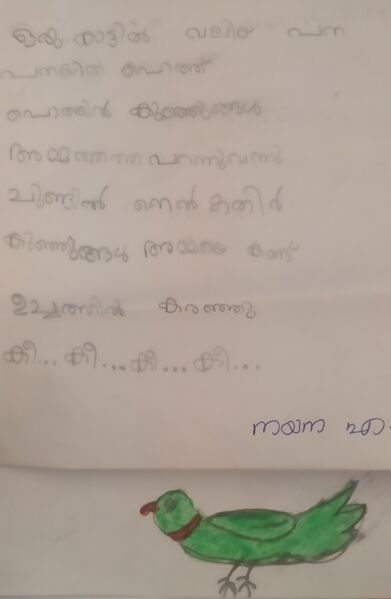 ഒരു കാട്ടിൽ വലിയ പന
പനയിൽ പൊത്ത്
പൊത്തിൽ കുഞ്ഞുങ്ങൾ
അമ്മതത്ത പറന്നുവന്നു
ചുണ്ടിൽ നെൽകതിർ
കുഞ്ഞുങ്ങൾ അമ്മയെ കണ്ട്
ഉച്ചത്തിൽ കരഞ്ഞു
കീ... കീ... കീ... കീ...
നയന എ.